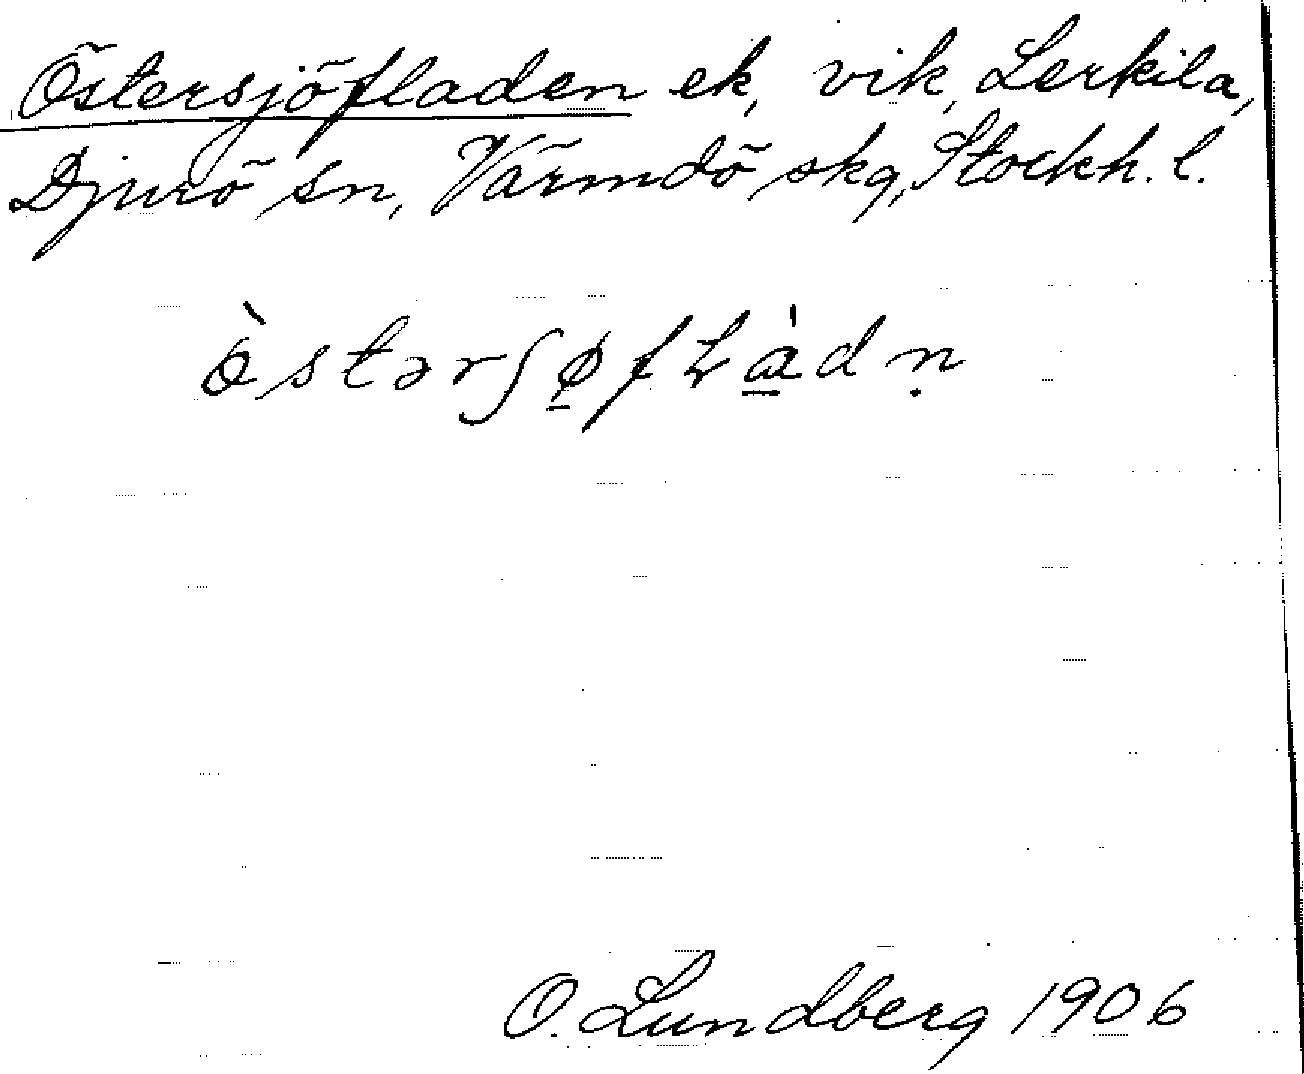 Östersjöfladen ek, vik, Lerkila,
Djurö sn, Värmdö skg, Stockh. l.
 òstərʃø̱fɫà̱dṇ
O. Lundberg 1906